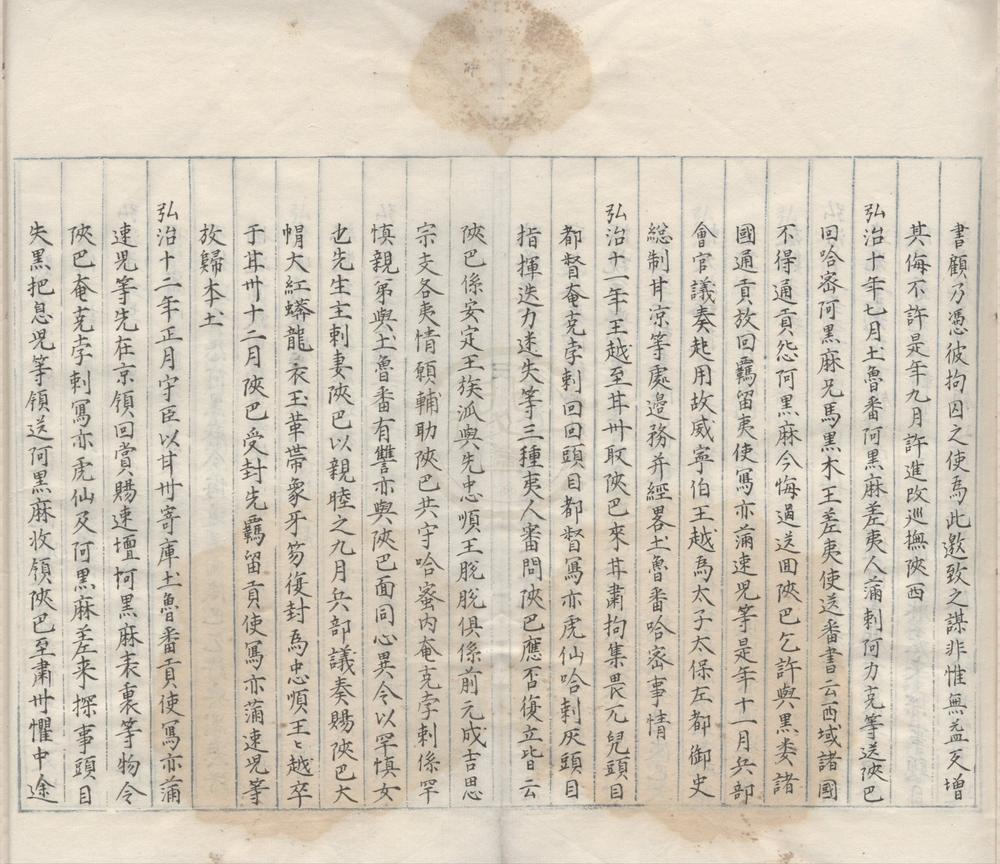 書顧乃憑彼拘囚之使為此邀致之謀非惟無益反增
其侮不許是年九月許進改巡撫陝西
弘治十年七月土魯番阿黑麻差夷人滿剌阿力克等送陝巴
回哈密阿黑麻兄馬黑木王差夷使送番書云西域諸國
不得通貢怨阿黑麻今悔過送回陝巴乞許與黑婁諸
國通貢放回羈留夷使寫亦滿速児等是年十一月兵部
會官議奏起用故威寧伯王越為太子太保左都御史
総制甘涼等處邉務并經畧土魯番哈密事情
弘治十一年王越至甘州取陝巴來甘肅拘集畏兀兒頭目
都督奄克孛剌回回頭目都督寫亦虎仙哈剌灰頭目
指揮迭力迷失等三種夷人審問陝巴應否復立皆云
陝巴係安定王族派與先忠順王脫脫俱係前元成吉思
宗支各夷情願輔助陝巴共守哈蜜內奄克孛剌係罕
慎親弟與土魯番有讐亦與陝巴面同心異令以罕慎女
也先主剌妻陝巴以親睦之九月兵部議奏賜陝巴大
帽大紅蟒龍衣玉革帶象牙笏復封為忠順王〻越卒
于甘州十二月陝巴受封先羈留貢使寫亦滿速児等
放歸本土
弘治十二年正月守臣以甘州寄庫土魯番貢使寫亦滿
速児等先在京領回賞賜速壇阿黑麻表裏等物令
陝巴奄克孛剌寫亦虎仙及阿黑麻差来探事頭目
失黑把息児等領送阿黑麻收領陝巴至肅州懼中途